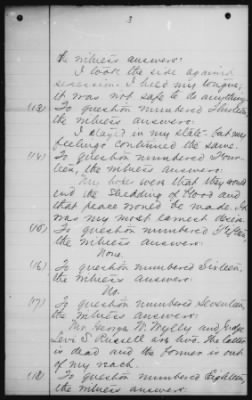 3
the witness answers:
I took the side against
secession. I held my tongue;
it was not safe to do anything.
(13) To question numbered Thirteen,
the witness answers:
I stayed in my state but my
feelings continued the same.
(14) To question numbered Four-
teen, the witness answers:
My hopes were that they would
end the shedding of blood and
that peace would be made. It
was my most earnest desire.
(15) To question numbered Fifteen,
the witness answers:
None.
(16) To question numbered Sixteen,
the witness answers:
No.
(17) To question numbered Seventeen,
the witness answers:
Mr. George W. and Judge
Levi S. Russell are two. The latter
is dead and the former is out
of my reach.
(18) To question numbered Eighteen,
the witness answers: